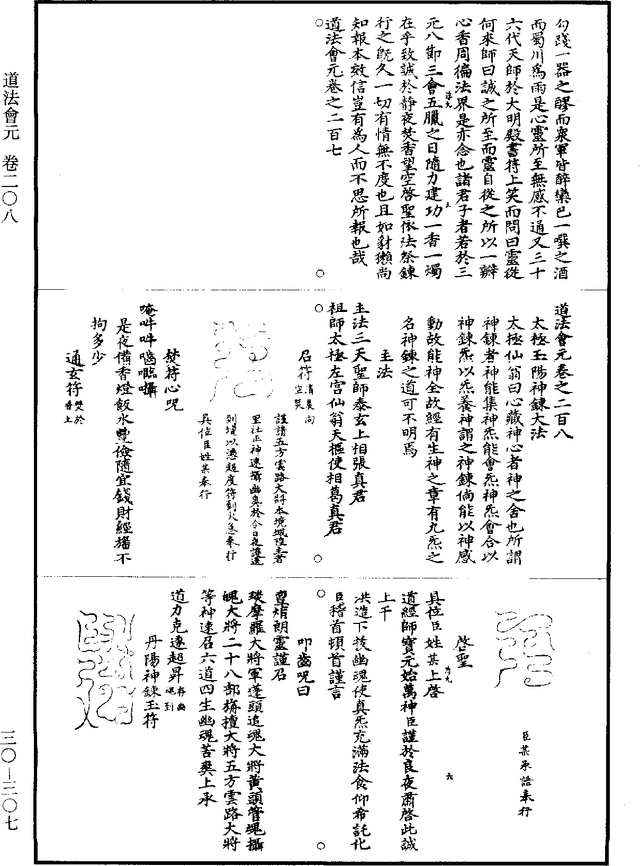 道法會元 卷二〇八
三〇—三〇七
勾踐一器之醪而衆軍皆醉欒巴一噀之酒
而蜀川爲雨是心靈所至無感不通又三十
六代天師於大明殿書符上笑而問曰靈從
何來師曰誠之所至而靈自從之所以一瓣
心香周徧法界是亦念也諸君子者若於三
元八節三會五臘之日隨力建功一香一燭
在乎致誠於静夜焚香望空啓聖依法祭鍊
行之既久一切有情無不度也且如豺獺尚
知報本效信豈有爲人而不思所報也哉
道法會元卷之二百七
道法會元卷之二百八
太極玉陽神鍊大法
太極仙翁曰心藏神心者神之舍也所謂
神鍊者神能集神炁能會炁神炁會合以
神鍊炁以炁養神謂之神鍊倘能以神感
動故能神全故經有生神之章有九炁之
名神鍊之道可不明焉
主法
主法三天聖師泰玄上相張真君
祖師太極左宫仙翁天樞使相葛真君
召符清晨向空焚
謹請五方雲路大將本境城隍主者
里社正神速攝幽爽於今日夜謹遠
到壇以憑超度符到火急奉行
具位臣姓某奉行
焚符心呪
唵吽吽嗡𠾱囁
是夜備香燈飯水豐儉隨宜錢財經旛不
拘多少
通玄符焚於香上
臣某承誥奉行
啓聖
具位臣姓某上啓
道經師寶元始萬神臣謹於良夜肅啓此誠
上干
洪造下拔幽魂使真炁充滿法食仰希託化
臣稽首頓首謹言
叩齒呪曰
亶娋朗靈謹召
琰摩羅大將軍蓬頭追魂大將黄頭管魂攝
魄大將二十八部旃檀大將五方雲路大將
等神速召六道四生幽魂苦爽上承
道力克遂超昇存幽魂到
丹陽神鍊玉符